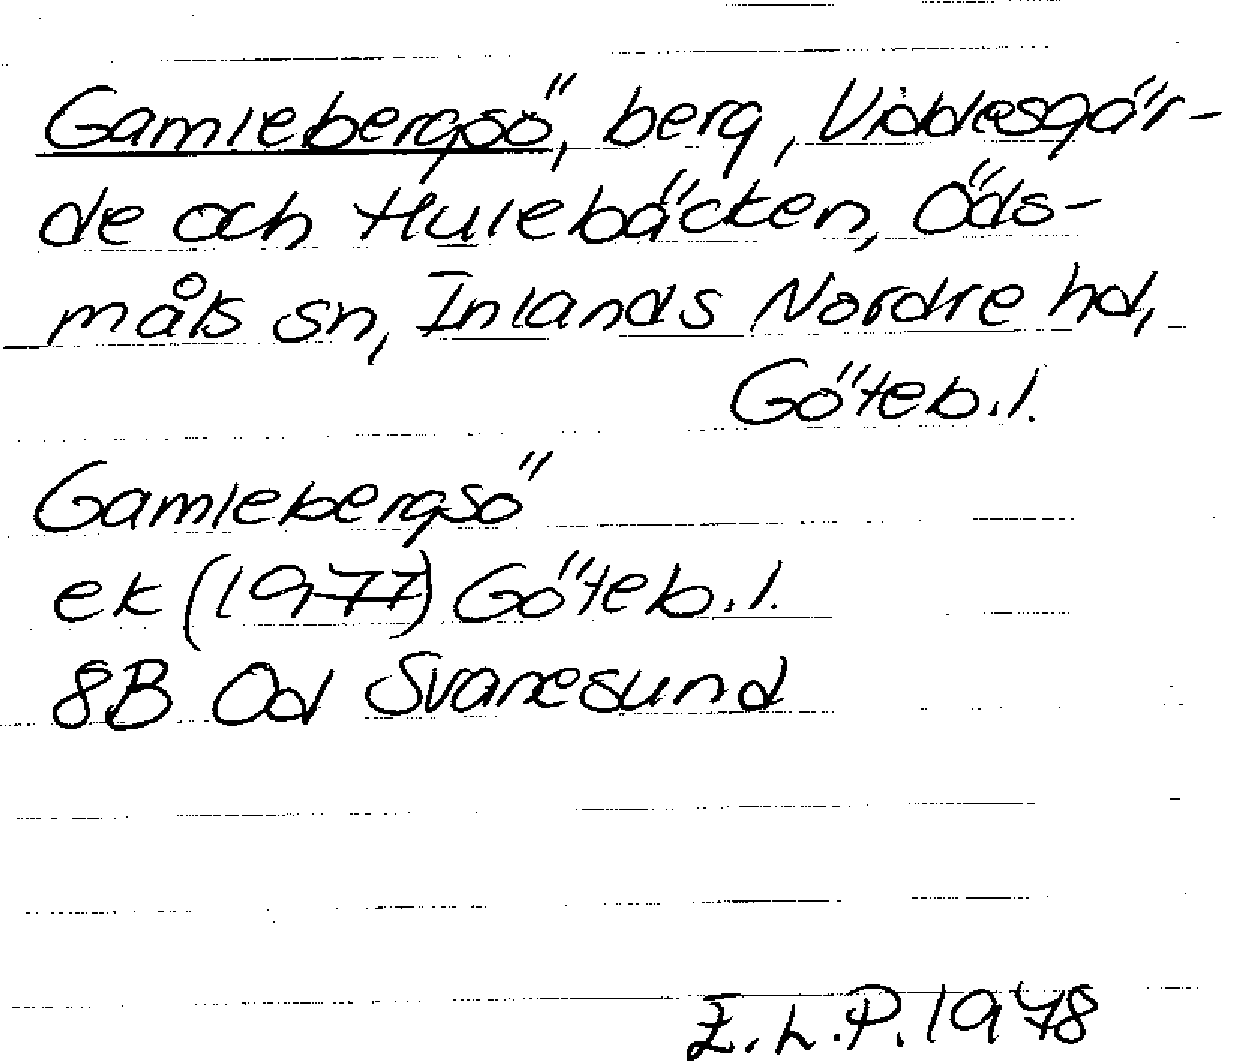 Gamlebergsö, berg, Viddesgär-
de och Hulebäcken, Öds-
måls sn, Inlands Nordre hd,
Göteb.l.
Gamlebergsö
ek (1977) Göteb.l.
8B 0d Svanesund
E.L.P. 1978